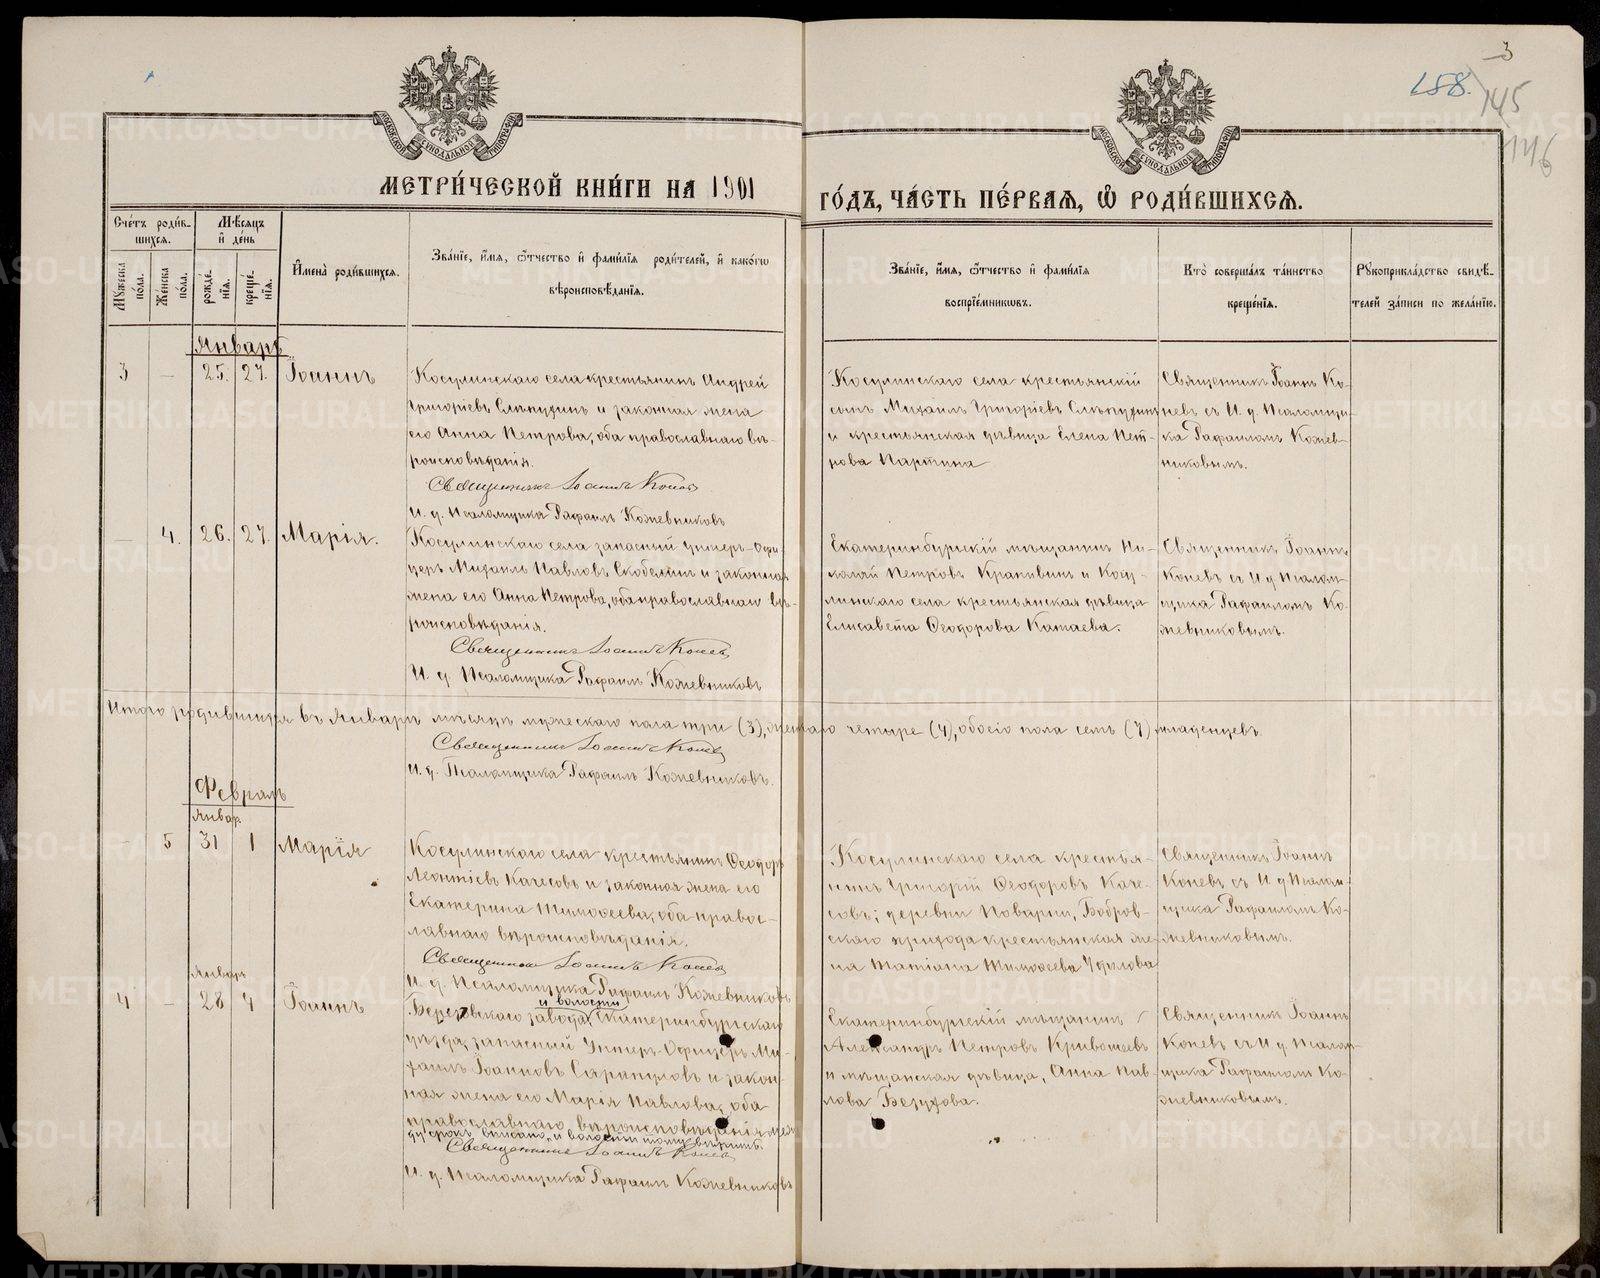 3
158.
145
146
МОСКОВСКОЙ СѴНОДАЛЬНОЙ ТИПОГРАФІИ
МОСКОВСКОЙ СѴНОДАЛЬНОЙ ТИПОГРАФІИ
МЕТРИ́ЧЕСКОЙ КНИ́ГИ НА 1901
ГО́ДЪ, ЧА́СТЬ ПЕ́РВАЯ, Ѽ РОДИ́ВШИХСЯ.
Сче́тъ роди́в-
шихся.
Мѣ́сяцъ
и҆ де́нь
Мꙋ́жеска
по́ла.
Же́нска
по́ла.
рожде́-
нїя.
креще́-
нїя.
И҆мена̀ роди́вшихся.
Зва́нїе, и҆́мя, ѻ҆́тчество и҆ фами́лїя роди́телей, и҆ како́гѡ
вѣроисповѣ́данїя.
Зва́нїе, и҆́мя, ѻ҆́тчество и҆ фами́лїя
воспрїе́мниковъ.
Кто̀ соверша́лъ та́инство
креще́нїя.
Рꙋкоприкла́дство свидѣ́-
телей за́писи по жела́нїю.
Январь
3 — 25. 27. Іоаннъ
Косулинскаго села крестьянинъ Андрей
Григоріевъ Слѣпухинъ и законная жена
его Анна Петрова, оба православнаго вѣ-
роисповѣданія.
Священникъ Іоаннъ Коневъ
И. д. Псаломщика Рафаилъ Кожевниковъ
Косулинскаго села крестьянскій
сынъ Михаилъ Григоріевъ Слѣпухинъ
и крестьянская дѣвица Елена Пет-
рова Партина
Священникъ Іоаннъ Ко-
невъ съ И. д. Псаломщи-
ка Рафаиломъ Кожев-
никовымъ.
— 4. 26. 27. Марія.
Косулинскаго села запасный унтеръ-офи-
церъ Михаилъ Павловъ Скобелинъ и законная
жена его Анна Петрова, оба православнаго вѣ-
роисповѣданія.
Священникъ Іоаннъ Коневъ
И. д. Псаломщика Рафаилъ Кожевниковъ
Екатеринбургскій мѣщанинъ Ни-
колай Петровъ Крапивинъ и Косу-
линскаго села крестьянская дѣвица
Елисавета Ѳеодорова Катаева.
Священникъ Іоаннъ
Коневъ съ И д Псалом-
щика Рафаиломъ Ко-
жевниковымъ.
Итого родившихся въ Январѣ мѣсяцѣ мужескаго пола три (3), женскаго четыре (4), обоего пола семь (7) младенцевъ.
Священникъ Іоаннъ Коневъ
И. д. Псаломщика Рафаилъ Кожевниковъ.
Февраль
Январ.
— 5 31 1 Марія
Косулинскаго села крестьянинъ Ѳеодоръ
Леонтіевъ Качесовъ и законная жена его
Екатерина Тимоѳеева, оба правос-
лавнаго вѣроисповѣданія.
Священникъ Іоаннъ Коневъ
И. д. Псаломщика Рафаилъ Кожевниковъ
Косулинскаго села крестья-
нинъ Григорій Ѳеодоровъ Каче-
совъ; деревни Поварни, Бобров-
скаго прихода крестьянская же-
на Татіана Тимоѳеева Удилова
Священникъ Іоаннъ
Коневъ съ И д Псалом-
щика Рафаиломъ Ко-
жевниковымъ.
Январь
4 — 28 4 Іоаннъ
и волости
Березовскаго завода, Екатеринбургскаго
уѣзда, запасный Унтеръ-Офицеръ Ми-
хаилъ Іоанновъ Сарапуловъ и закон-
ная жена его Марія Павлова, оба
православнаго вѣроисповѣданія, меж-
ду строкъ вписано „и волости“ тому вѣрить.
Священникъ Іоаннъ Коневъ
И. д. Псаломщика Рафаилъ Кожевниковъ
Екатеринбургскій мѣщанинъ
Александръ Петровъ Кривошеевъ
и мѣщанская дѣвица, Анна Пав-
лова Безухова.
Священникъ Іоаннъ
Коневъ съ И д Псалом-
щика Рафаиломъ Ко-
жевниковымъ.
METRIKI.GASO-URAL.RU